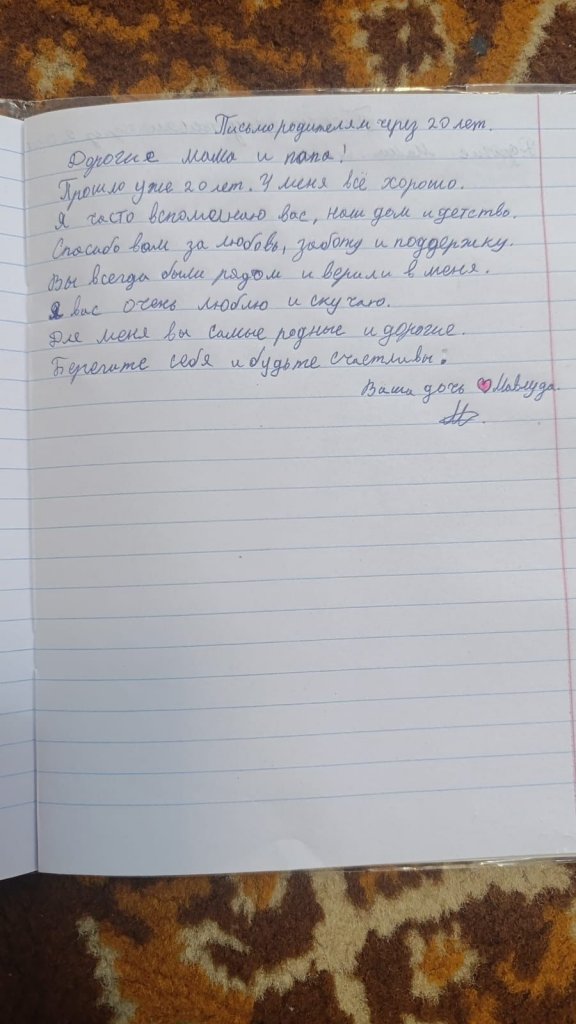 Письмо родителям через 20 лет.
Дорогие мама и папа!
Прошло уже 20 лет. У меня всё хорошо.
Я часто вспоменаю вас, наш дом и детство.
Спасибо вам за любовь, заботу и поддержку.
Вы всегда были рядом и верили в меня.
Я вас очень люблю и скучаю.
Для меня вы самые родные и дорогие.
Берегите себя и будьте счастливы.
Ваша дочь Мавлуда.